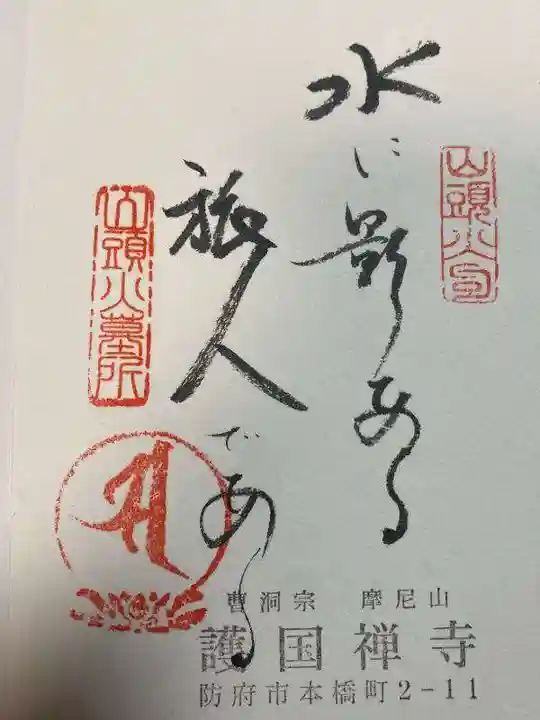 山頭火句
水に影ある
旅人である
山頭火墓所
曹洞宗 摩尼山
護国禅寺
防府市本橋町2-11